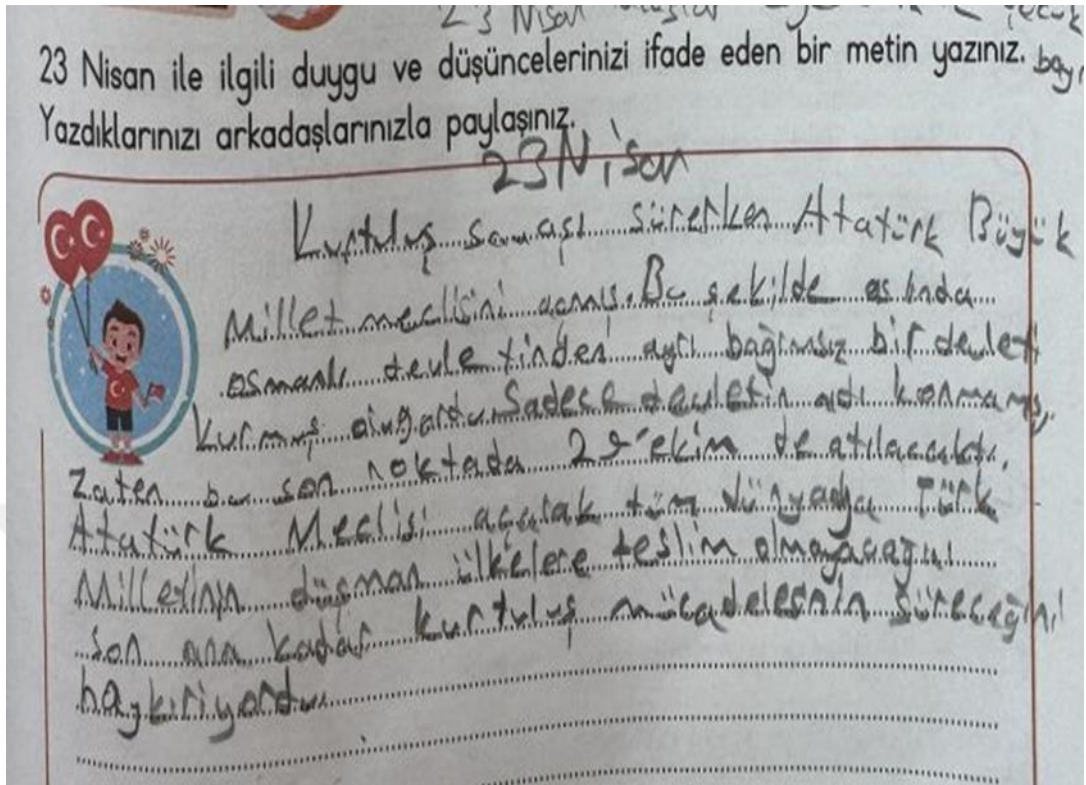 23 Nisan
23 Nisan ile ilgili duygu ve düşüncelerinizi ifade eden bir metin yazınız.
Yazdıklarınızı arkadaşlarınızla paylaşınız.
23 Nisan
Kurtuluş savaşı sürerken Atatürk Büyük
Millet meclisini açmış. Bu şekilde aslında
osmanlı devletinden ayrı bağımsız bir devlet
kurmuş oluyordu. Sadece devletin adı konmamış,
Zaten bu son noktada 29'ekim de atılacaktı.
Atatürk Meclisi açarak tüm dünyaya Türk
Milletinin düşman ülkelere teslim olmayacağını
son ana kadar kurtuluş mücadelesnin süreceğini
haykırıyordu.